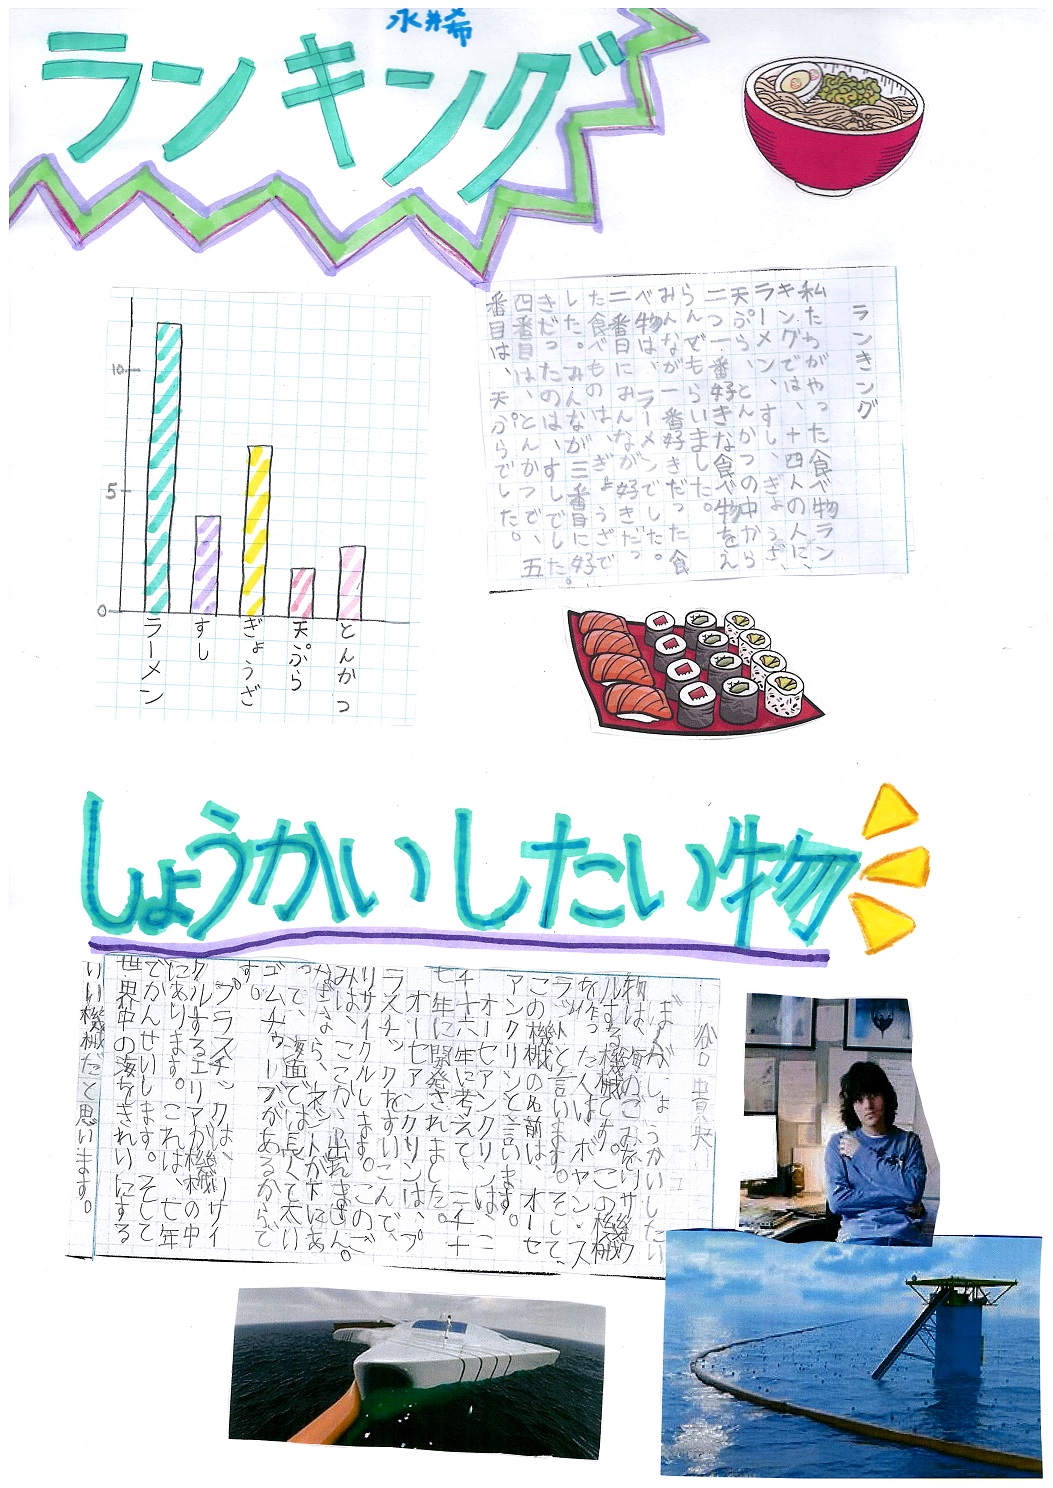 永井希
ランキング
ランきング
私たちがやった食べ物ラン
キングでは、十四人の人に、
ラーメン、すし、ぎょうざ、
天ぷら、とんかつの中から
二つ一番好きな食べ物をえ
らんでもらいました。
みんなが一番好きだった食
べ物は、ラーメンでした。
二番目にみんなが好きだっ
た食べものは、ぎょうざで
した。みんなが三番目に好
きだったのは、すしでした。
四番目は、とんかつで、五
番目は、天ぷらでした。
10
5
0
ラーメン
すし
ぎょうざ
天ぷら
とんかつ
しょうかいしたい物
ぼくがしょうかいしたい
物は、海のごみをリサイク
ルする機械です。この機械
を作った人は、ボヤン・ス
ラットと言います。そして、
この機械の名前は、オーセ
アンクリンと言います。
オーセアンクリンは、二
千十六年に考えて、二千十
七年に開発されました。
オーセアンクリンは、プ
ラスチックをすいこんで、
リサイクルします。このご
みは、ここから出れません。
なぜなら、ネットが下にあ
って、海面では長くて太い
ゴムチューブがあるからで
す。
プラスチックは、リサイ
クルするエリアが機械の中
にあります。これは、七年
でかんせいします。そして
世界中の海をきれいにする
いい機械だと思います。